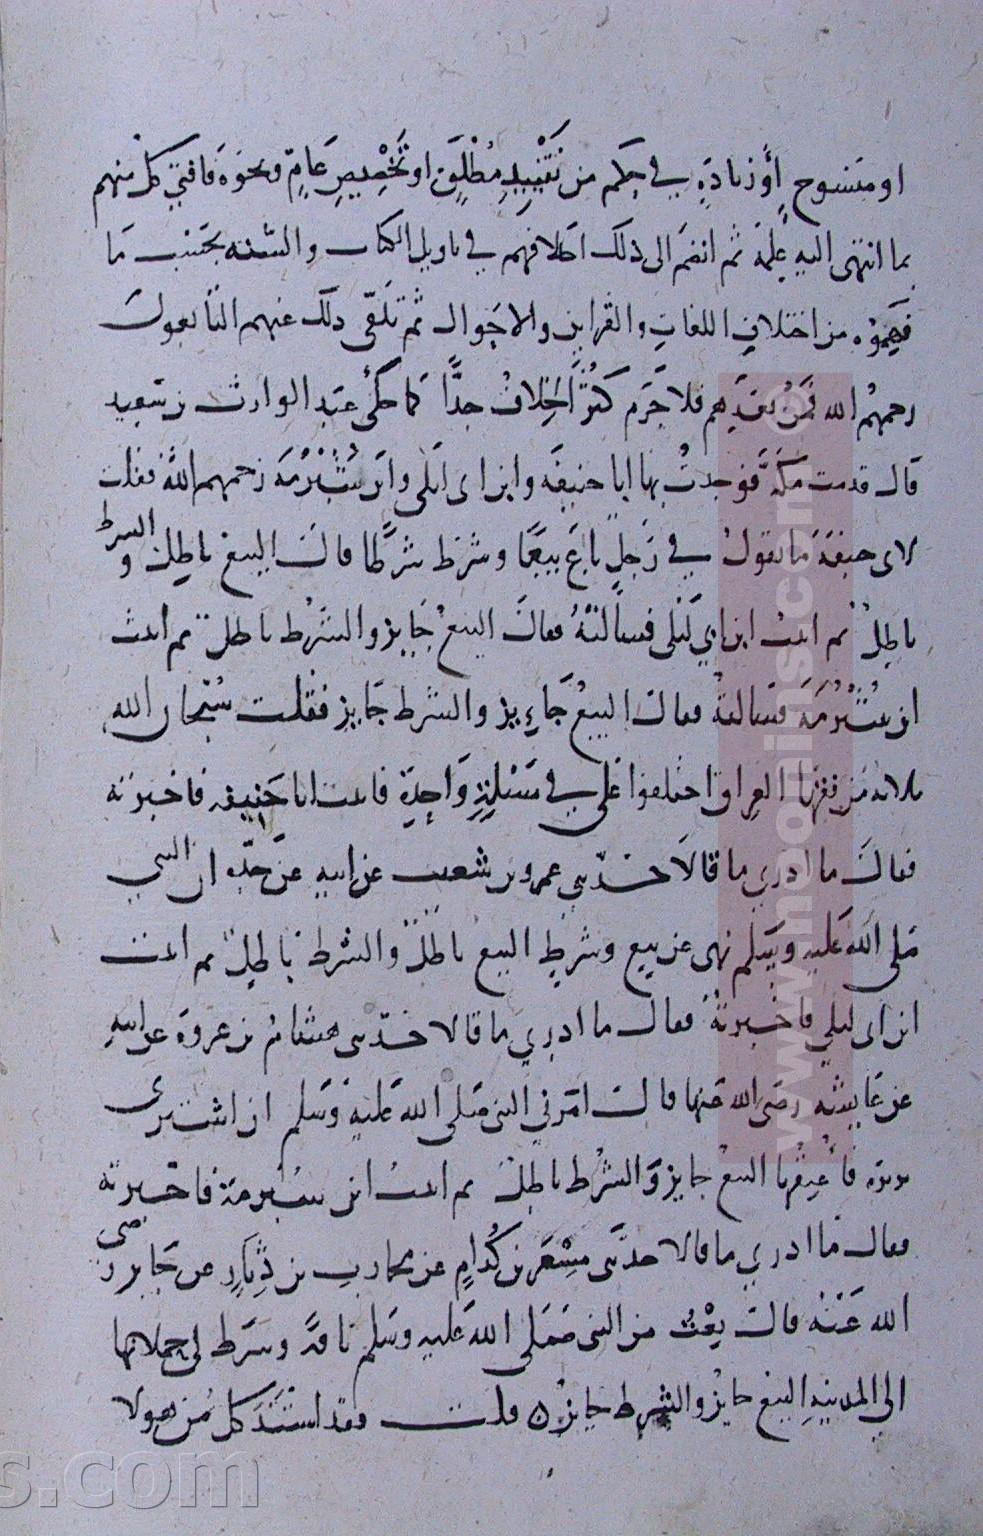 او منسوخ أو زيادةٍ في حكم من تقييدِ مُطْلَقٍ او تخْصِيصِ عَامٍّ ونحوه فافتى كل منهم
بما انتهى اليه علمه ثم انضم الى ذلك اختلافهم في تاويل الكتاب والسنه بحسب ما
فهموه من اختلاف اللغات والقراين والاحوال ثم تلقّى ذلك عنهم التابعون
رحمهم الله فمن بعدهم فلا جَرَم كثر الخلاف جدًّا كما حكى عبد الوارث بن سعيد
قال قدمت مكّة فوجدتُ بها ابا حنيفه وابن ابى ليلى وابن شُبْرُمَة رحمهم الله فقلت
لابى حنيفة ما تقول في رَجلٍ باع بيعًا وشرط شرطا قال البيع باطل والشرط
باطل ثم اتيت ابن ابي ليلى فسالتهُ فقال البيع جايز والشرط باطل ثم اتيت
ابن شُبْرُمَة فسالته فقال البيعُ جَايز والشرط جايز فقلت سُبحان الله
ثلاثه من فقها العراق اختلفوا علي في مَسْئلةٍ وَاحِدَةٍ فاتيت ابا حنيفه فاخبرته
فقال ما ادري ما قالا حدّثني عمرو بن شعيب عن ابيه عن جدّه ان النبي
صلى الله عليه وسلم نهى عن بيع وشرطٍ البيع باطل والشرط باطل ثم اتيت
ابن ابى ليلى فاخبرته فقال ما ادري ما قالا حدّثنى هشام بن عروة عن ابيه
عن عايشه رضى الله عنها قالت امرني النبى صلى الله عليه وسلم ان اشترى
بريرة فاعتقها البيع جايز والشرط باطل ثم اتيت ابن شبرمة فاخبرته
فقال ما ادري ما قالا حدثنى مِسْعَر بن كدام عن محارب بن دِثارٍ عن جابر رضى
الله عَنْهُ قال بِعْتُ من النبى صَلى الله عليه وسلم ناقة وشرط لى حملانها
الى المدينه البيع جايز والشرط جايز ۵ قلت فقد استند كل من هولا
www.nooollns.com ©
s.com